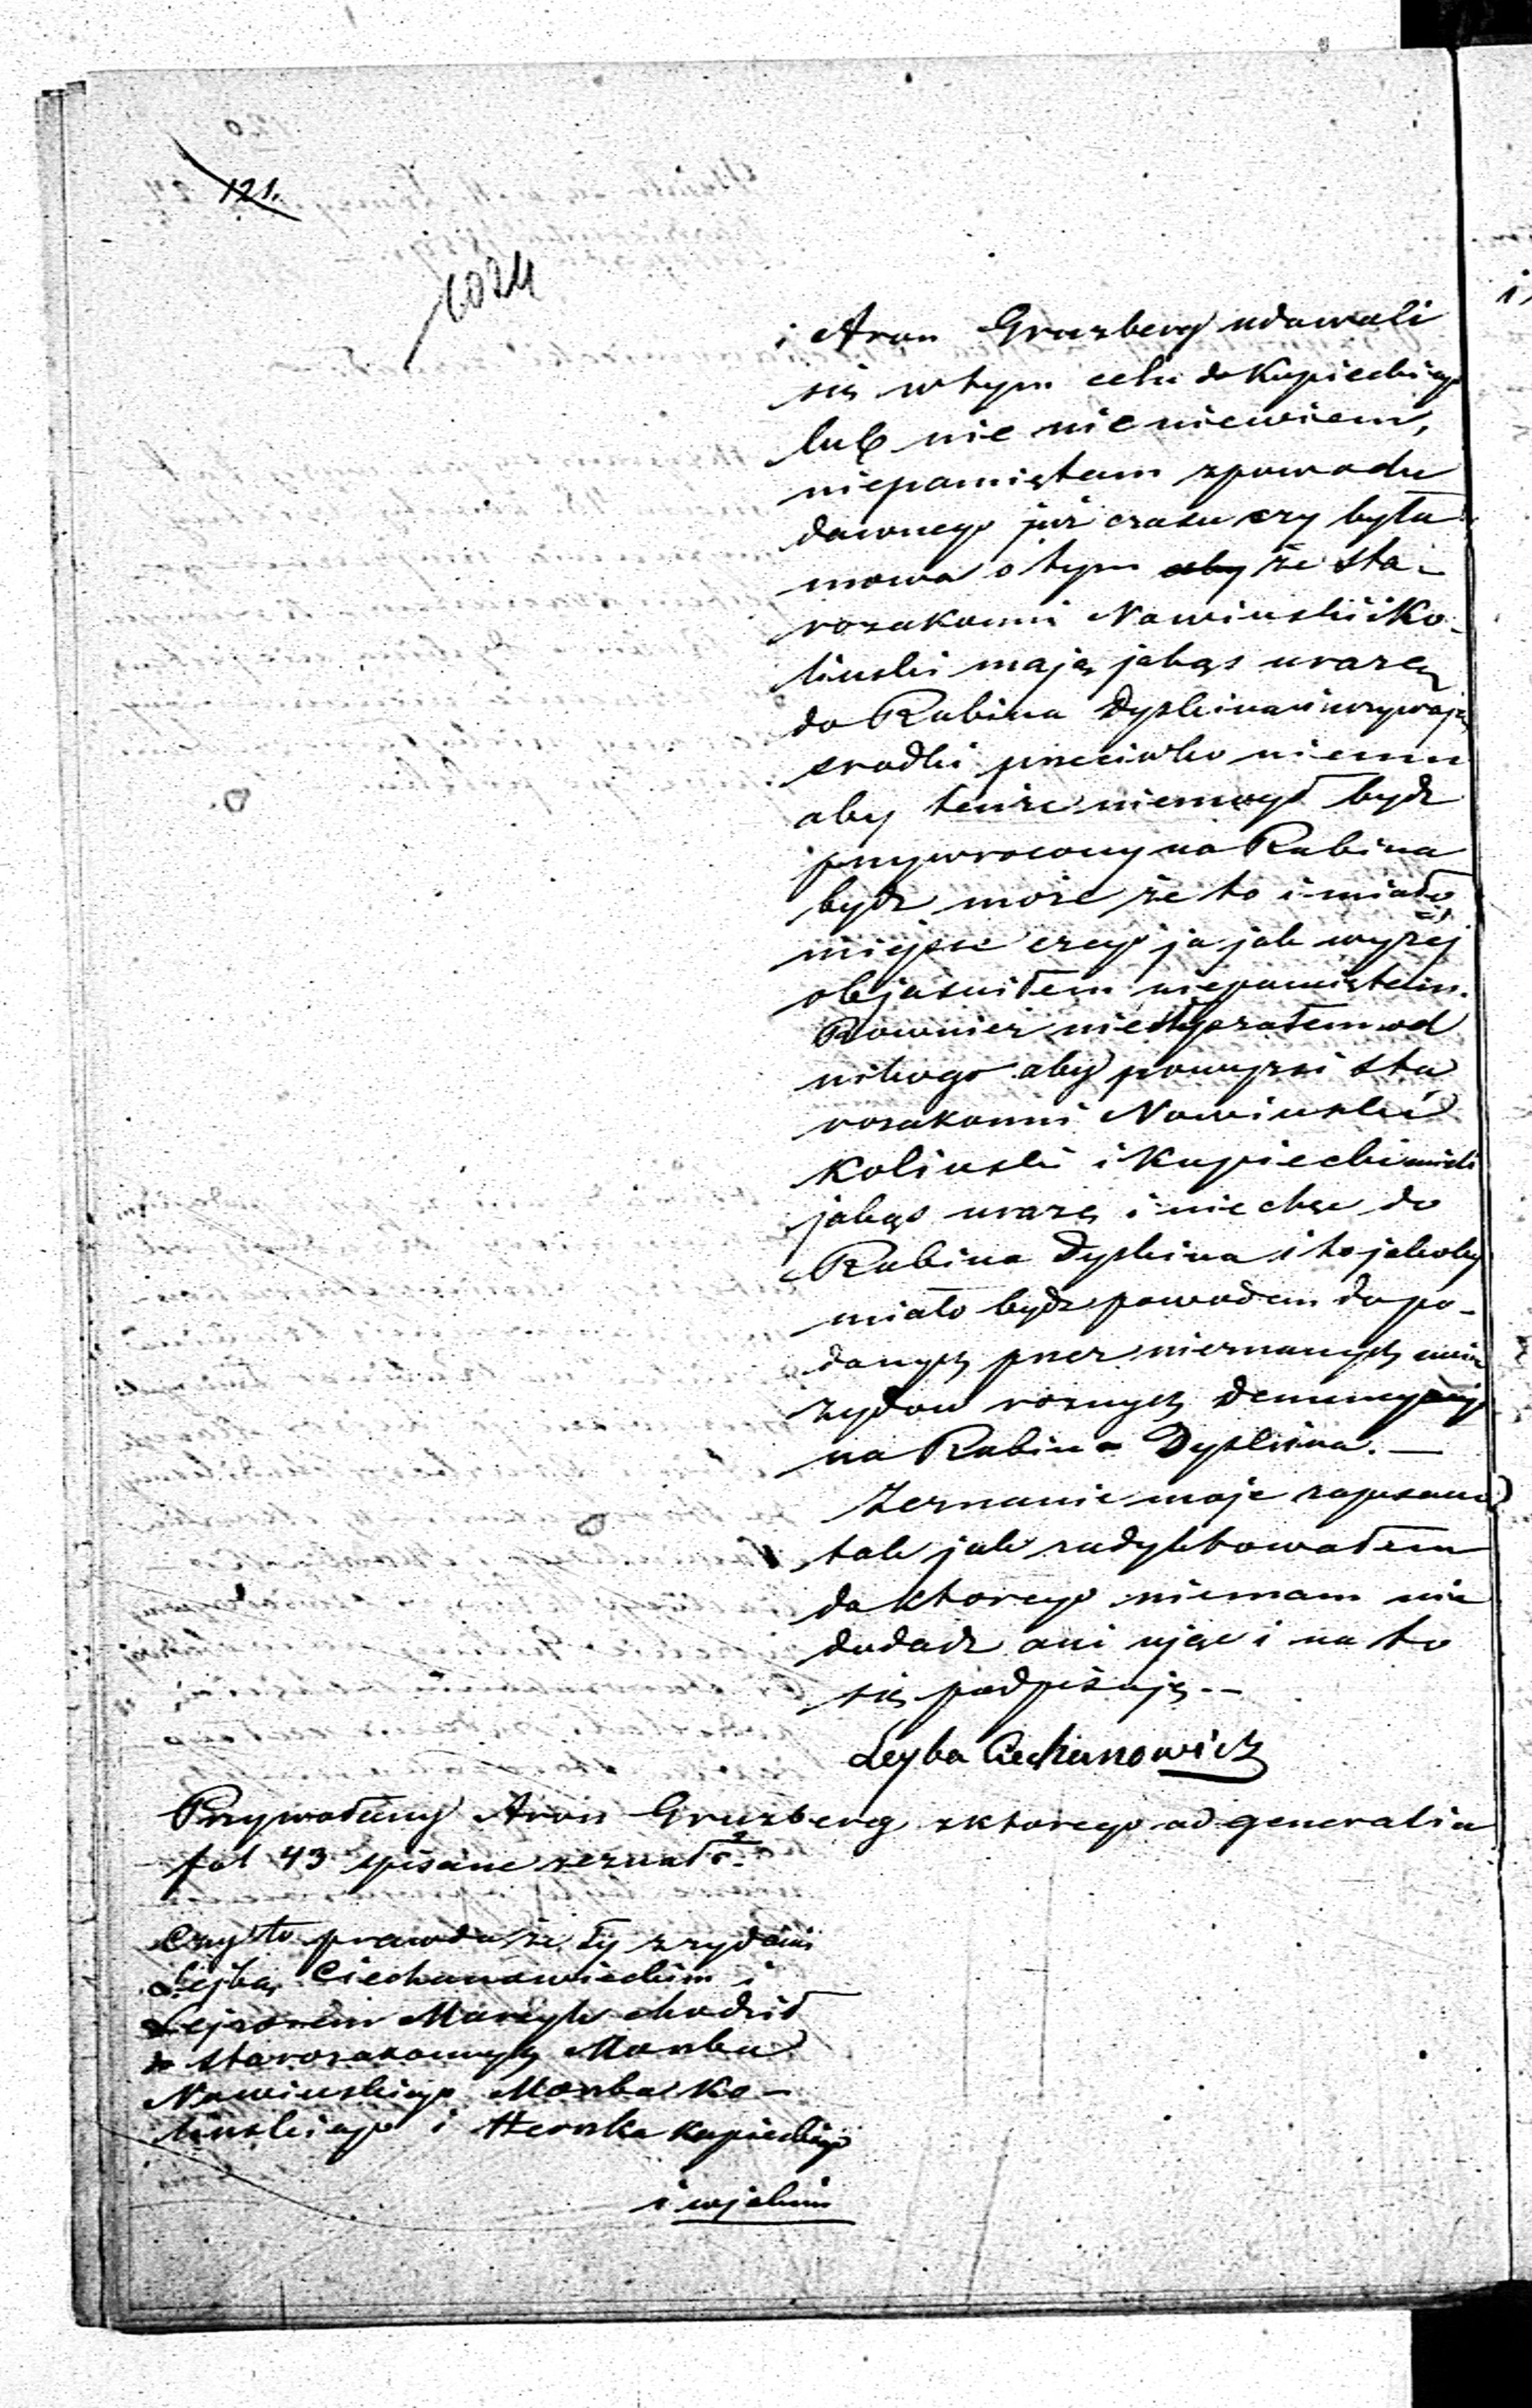 121.
1024
i Aron Gruzberg udawali
się wtym celu do Kupieckiego
lub nie nic niewiem,
niepamiętam zpowodu
dawnego już czasu czy była
mowa o tym aby że sta-
rozakonni Nowinski i Ko-
linski mają jakąs urazę
do Rabina Dyskina i uzywają
srodki przeciwko niemu
aby tenże niemogł bydz
przywrocony na Rabina
bydz może że to i miało
miejsce czego ja jak wyżej
objasniłem niepamiętam.
Rownież niesłyszałem od
nikogo aby powyzsi sta
rozakonni Nowinski
Kolinski i Kupiecki mieli
jakąs urazę i niechęc do
Rabina Dyskina i to jakoby
miało bydz powodem do po-
danych przez nieznanych mnie
zydow roznych denuncyacyi
na Rabina Dyskina. —
Zeznanie moje zapisano
tak jak zadyktowałem
do ktorego niemam nic
dodadz ani ując i na to
się podpisuję. —
Leyba Ciechanowicz
Przywołany Aron Gruzberg zktorego ad generalia
fol 43 spisane zeznał:
Czy to prawda że Ty z zydami
Lejbą Ciechanowieckim i
Lejzorem Marcyk chodził
do starozakonnych Morka
Nowinskiego Morka Ko-
linskiego i Herszka Kupieckiego
i wjakim